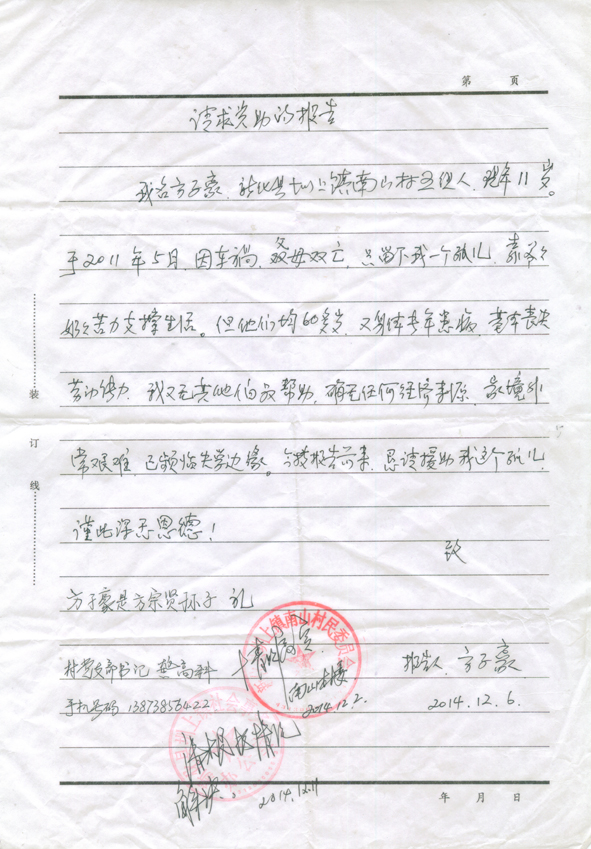 第 页
请求资助的报告
我名方子豪, 镇南山村五组人, 现年11岁。
于2011年5月, 因车祸, 父母双亡, 只留下我一个孤儿, 靠爷爷
奶奶苦力支撑生活。但他们均60多岁, 又身体多年患病, 基本丧失
劳动能力, 我又无其他伯叔帮助, 确无任何经济来源, 家境非
常艰难, 已频临失学边缘。今特报告前来, 恳请援助我这个孤儿,
谨此深表恩德!
致
方子豪是方宗贤孙子 礼
村党支部书记 高科
手机号码 13873856422
镇南山村民委员会
2014.12.2.
报告人, 方子豪
2014.12.6.
请根据情况
解决. 2014.12.11
年 月 日
装
订
线